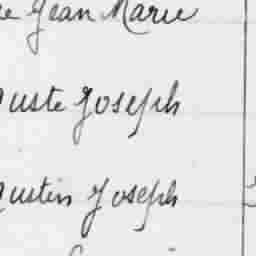 e Jean Marie
uste Joseph
ustin Joseph